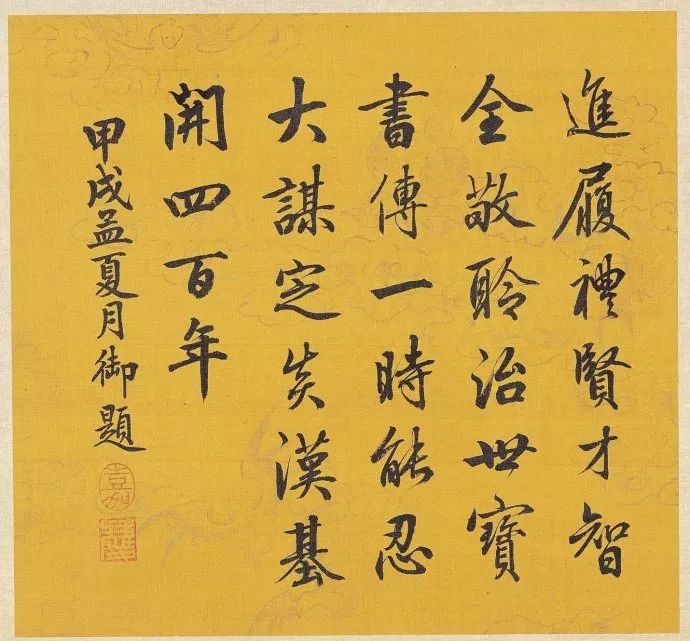 進履禮賢才智
全敬聆治世寶
書傳一時能忍
大謀定炎漢基
開四百年
甲戌孟夏月御題
嘉